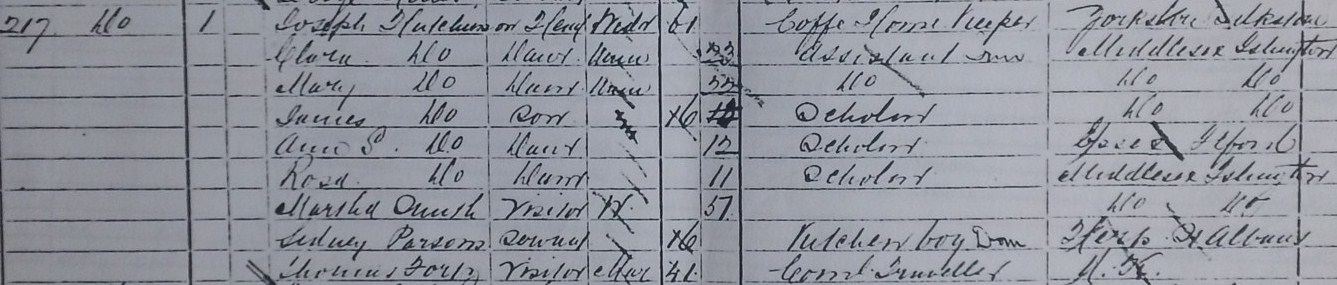 217 Do 1 Joseph Hutchinson Head Widr 61 Coffe House Keeper Yorkshire Silkstone
Clara Do Daur Unm 23 Assistant Middlesex Islington
Mary Do Daur Unm 22 Do Do Do
James Do Son X6 Scholar Do Do
Ann S. Do Daur 12 Scholar Essex Ilford
Rosa Do Daur 11 Scholar Middlesex Islington
Martha Smith Visitor W. 57 Do Do
Sidney Parsons Servant X6 Kitchen boy Dom Herts St Albans
Thomas Visitor Mar 41 Coml Traveller N. K.